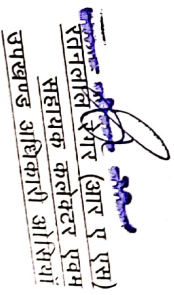 रतनलाल रेगर (आर ए एस)
सहायक कलेक्टर एवम
उपखण्ड अधिकारी ओसियां